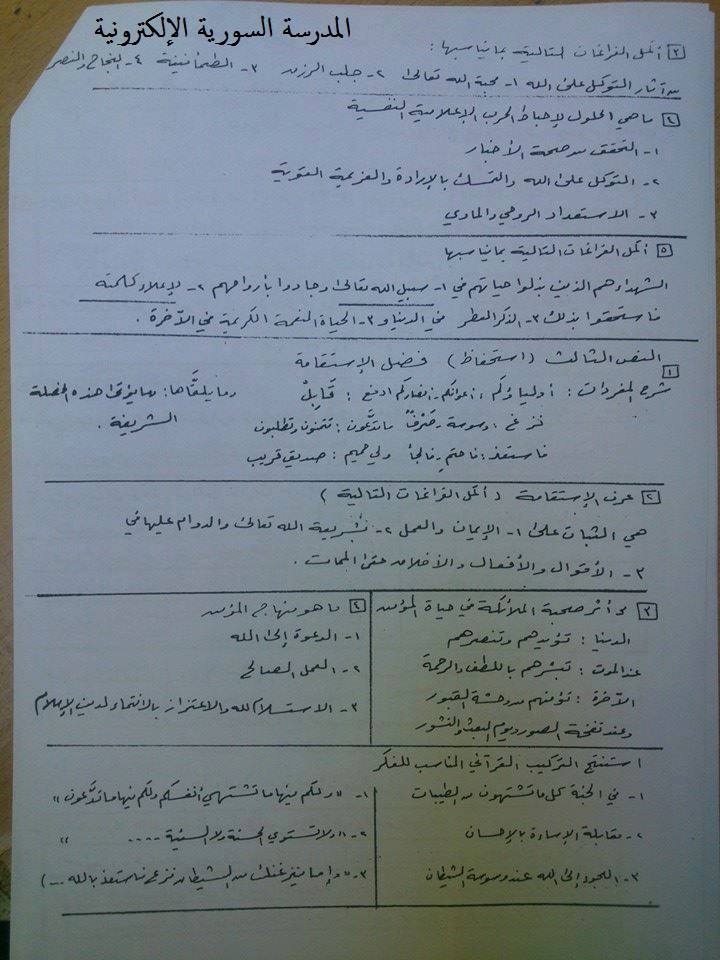 المدرسة السورية الإلكترونية
٣ أكمل الفراغات التالية بما يناسبها :
من آثار التوكل على الله ١- محبة الله تعالى ٢- جلب الرزق ٣- الطمأنينة ٤- النجاح والنصر
٤ ما هي الحلول لإحباط الحرب الإعلامية النفسية
١- التحقق من صحة الأخبار
٢- التوكل على الله والتمسك بالإرادة والعزيمة القوية
٣- الاستعداد الروحي والمادي
٥ أكمل الفراغات التالية بما يناسبها
الشهداء وهم الذين بذلوا حياتهم في ١- سبيل الله تعالى وجادوا بأرواحهم ٢- لإعلاء كلمته
فاستحقوا بذلك ٣- الذكر العطر في الدنيا و ٣- الحياة المنعمة الكريمة في الآخرة .
النص الثالث ( استحفاظ ) فضل الإستقامة
١ شرح المفردات : أولياؤكم : أعوانكم - أنصاركم ادفع : قَابِلْ وما يلقَّاها : ما يؤتى هذه الخصلة الشريفة .
نزغ : وسوسة ما تدَّعون : تتمنون وتطلبون
فاستعذ : فاحتمِ والجأ ولي حميم : صديق قريب
٢ عرف الإستقامة ( أكمل الفراغات التالية )
هي الثبات على ١- الإيمان والعمل ٢- بشريعة الله تعالى والدوام عليها في
٣- الأقوال والأفعال والأخلاق حتى الممات .
٣ أثر صحبة الملائكة في حياة المؤمن
الدنيا : تؤيدهم وتنصرهم
عند الموت : تبشرهم باللطف والرحمة
الآخرة : تؤنسهم من وحشة القبور
وعند نفخة الصور ويوم البعث والنشور
٤ ما هو منهاج المؤمن
١- الدعوة إلى الله
٢- العمل الصالح
٣- الاستسلام لله والاعتزاز بالانتماء لدين الإسلام
استنتج التركيب القرآني المناسب للفكر
١- في الجنة كل ما تشتهون من الطيبات ١- « ولكم فيها ما تشتهي أنفسكم ولكم فيها ما تدَّعون »
٢- مقابلة الإساءة بالإحسان ٢- « ولا تستوي الحسنة ولا السيئة .... »
٣- اللجوء إلى الله عند وسوسة الشيطان ٣- « وإما ينزغنك من الشيطان نزغ فاستعذ بالله ... )